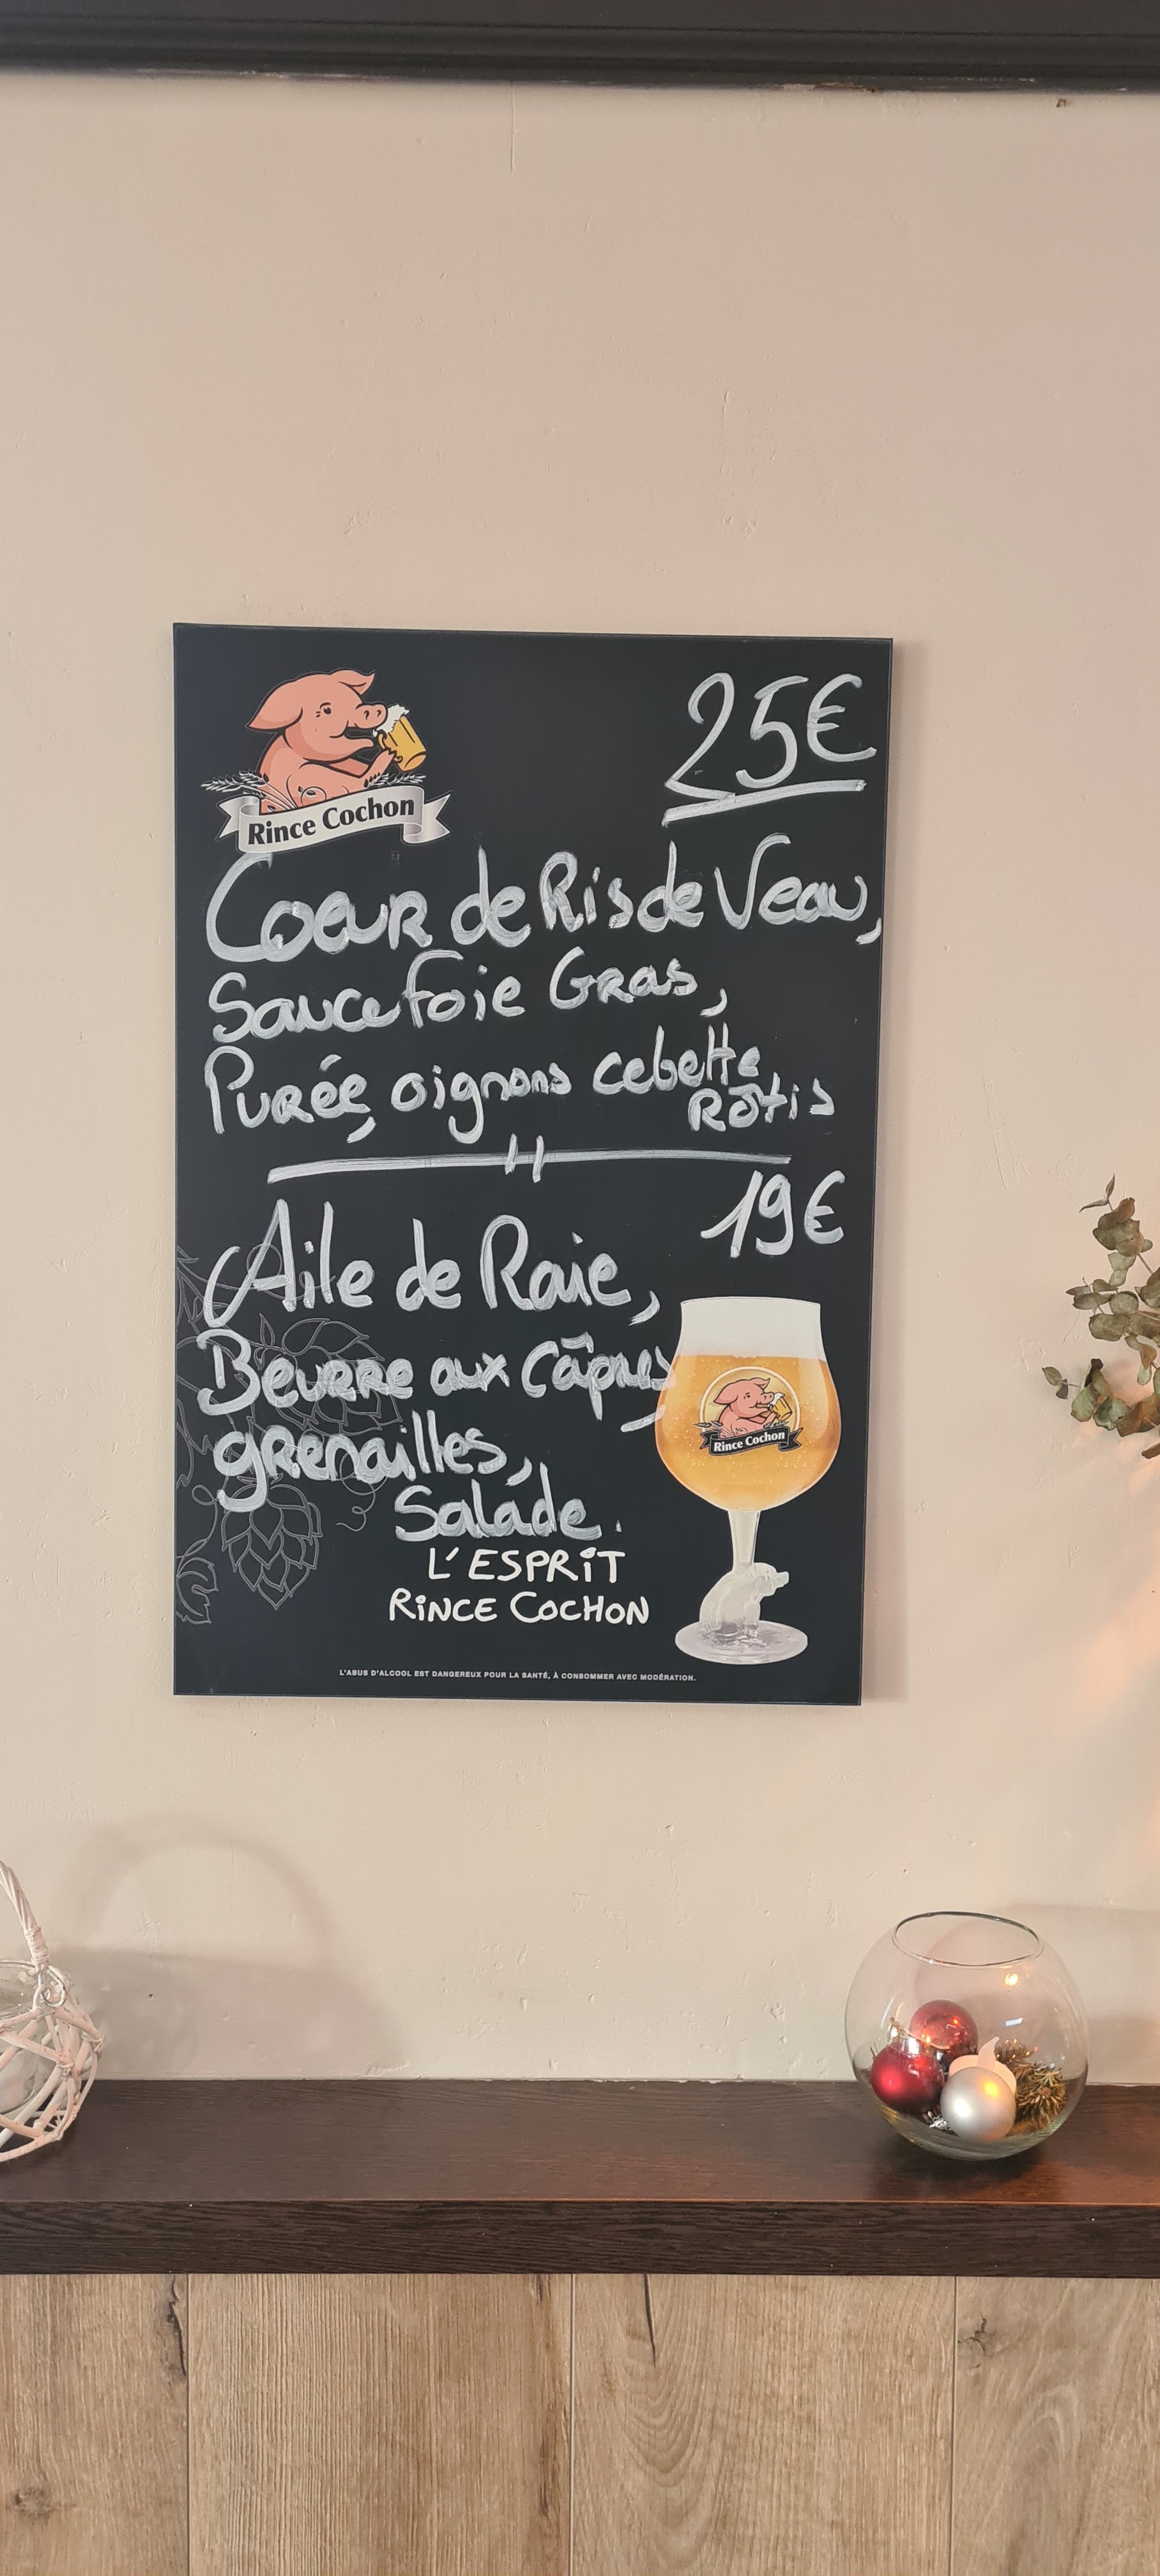 Rince Cochon
25€
Coeur de Ris de Veau,
Sauce foie Gras,
Purée, oignons cebette
Rôtis
19€
Aile de Raie,
Beurre aux Câpres,
grenailles,
Salade.
Rince Cochon
L'ESPRiT
RiNCE COCHON
L'ABUS D'ALCOOL EST DANGEREUX POUR LA SANTÉ, À CONSOMMER AVEC MODÉRATION.